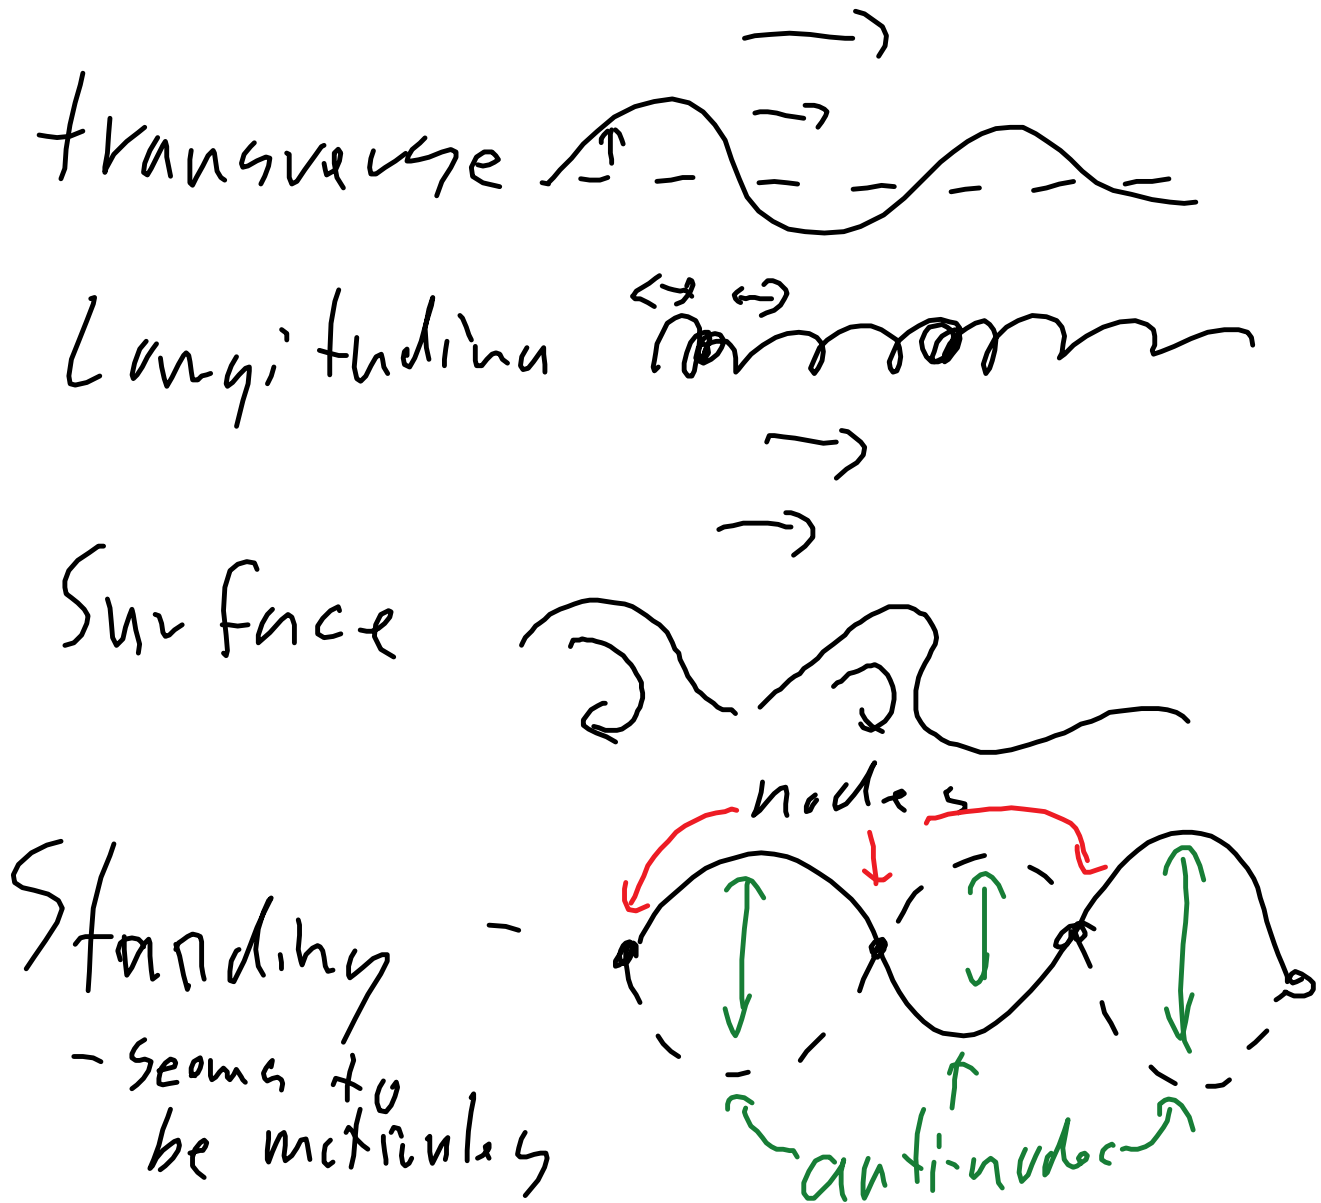 transverse
Longitudina
Surface
nodes
Standing -
- seems to
be motionless
anti-nodes